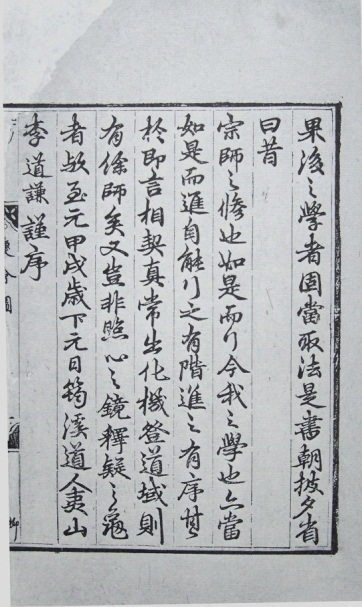 果後之學者固當取法是書朝披夕省
曰昔
宗師之修也如是而行今我之學也亦當
如是而進自能行之有階進之有序其
於即言相契真常出化機登道域則
有餘師矣又豈非照心之鏡釋疑之龜
者歟至元甲戌歲下元日筠溪道人夷山
李道謙謹序
會圖